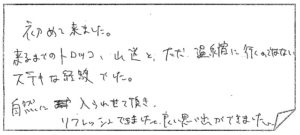 初めて来ました。
来るまでのトロッコ、山道と、ただ温泉宿に行くのではない
ステキな経験でした。
自然に入らせて頂き、
リフレッシュできました。良い思い出ができました。